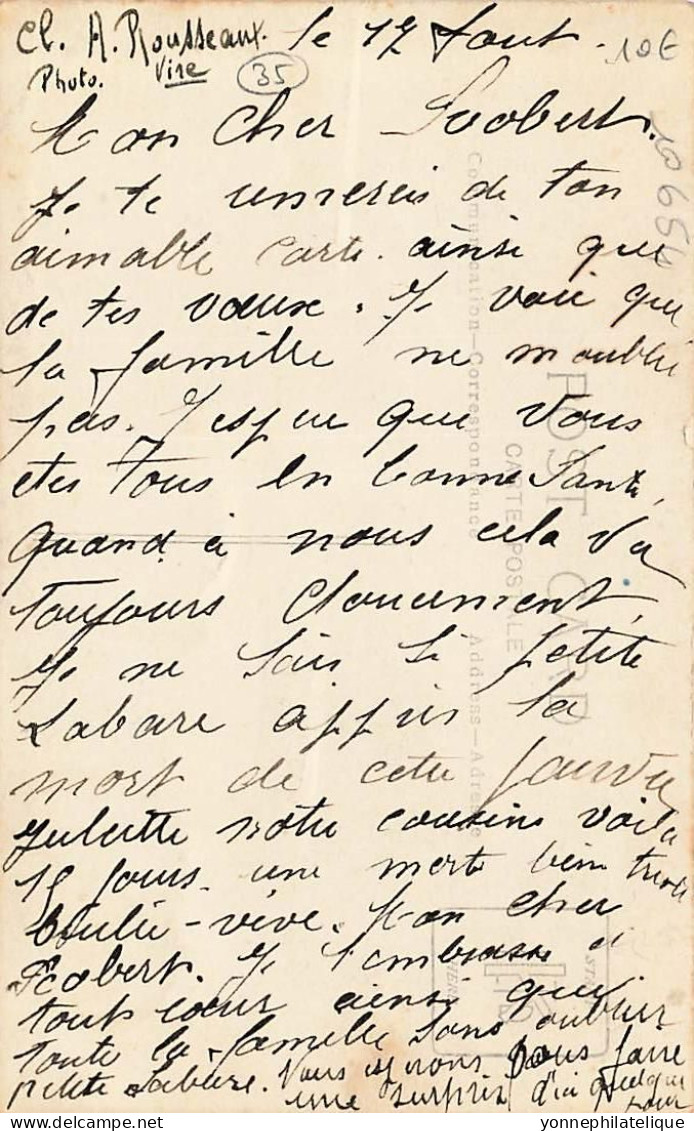 Cl. A. Rousseaux.
Photo. Vire
35
le 17 Aout.
10€
10654
Mon cher Roobert.
Je te remercis de ton
aimable carte. ainsi que
de tes vœux. Je voie que
la famille ne m'oublie
pas. J'esper que vous
etes tous en bonne Santé,
quand à nous cela va
toujours doucement,
Je ne sais si petite
Labare appris la
mort de cette pauvre
Juliette notre cousine voila
15 jours. une mort bien triste
brulée-vive. Mon cher
Roobert. Je t'embrasse de
tout cœur ainsi que
toute la famille sans oublier
petite Labare. Nous esperons vous faire
une surprise d'ici quelque
jour
POST CARD
CARTE POSTALE
Communication—Correspondance
Address—Adresse
yonnephilatelie.com